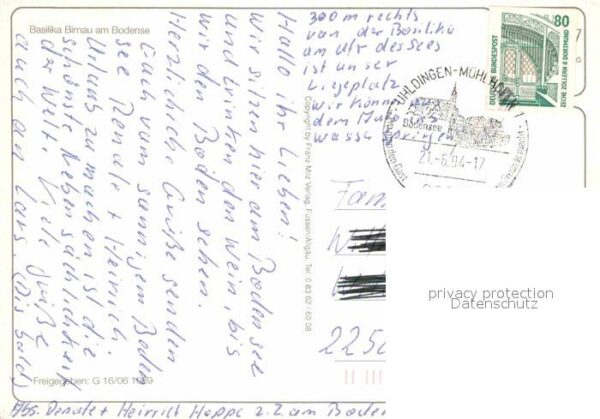 Basilika Birnau am Bodense
Hallo ihr Lieben!
Wir sitzen hier am Boden see
und trinken den Wein, bis
wir den Boden sehen.
Herzlichche Grüße senden
Euch vom sonnigem Boden
see Renate + Heinrich
Urlaub zu machen ist die
schönste Neben sächlichkeit
der Welt. Viele Grüße
auch an Lars.
300 m rechts
von der Basilika
am Ufr des Sees
ist unser
Liegeplatz
wir können aus
dem Auto ins
wasser springen
80
DEUTSCHE BUNDESPOST
ZECHE ZOLLERN II DORTMUND
UHLDINGEN-MÜHLHOFEN 1
Bodensee
21.-6.94-17
Copyright by Franz Milz Verlag, Füssen/Allgäu, Tel. 0 83 62 / 60 08
Fam
225
privacy protection
Datenschutz
Freigegeben: G 16/06 1969
Abs. Renate + Heinrich Hoppe z.Z. am Boden